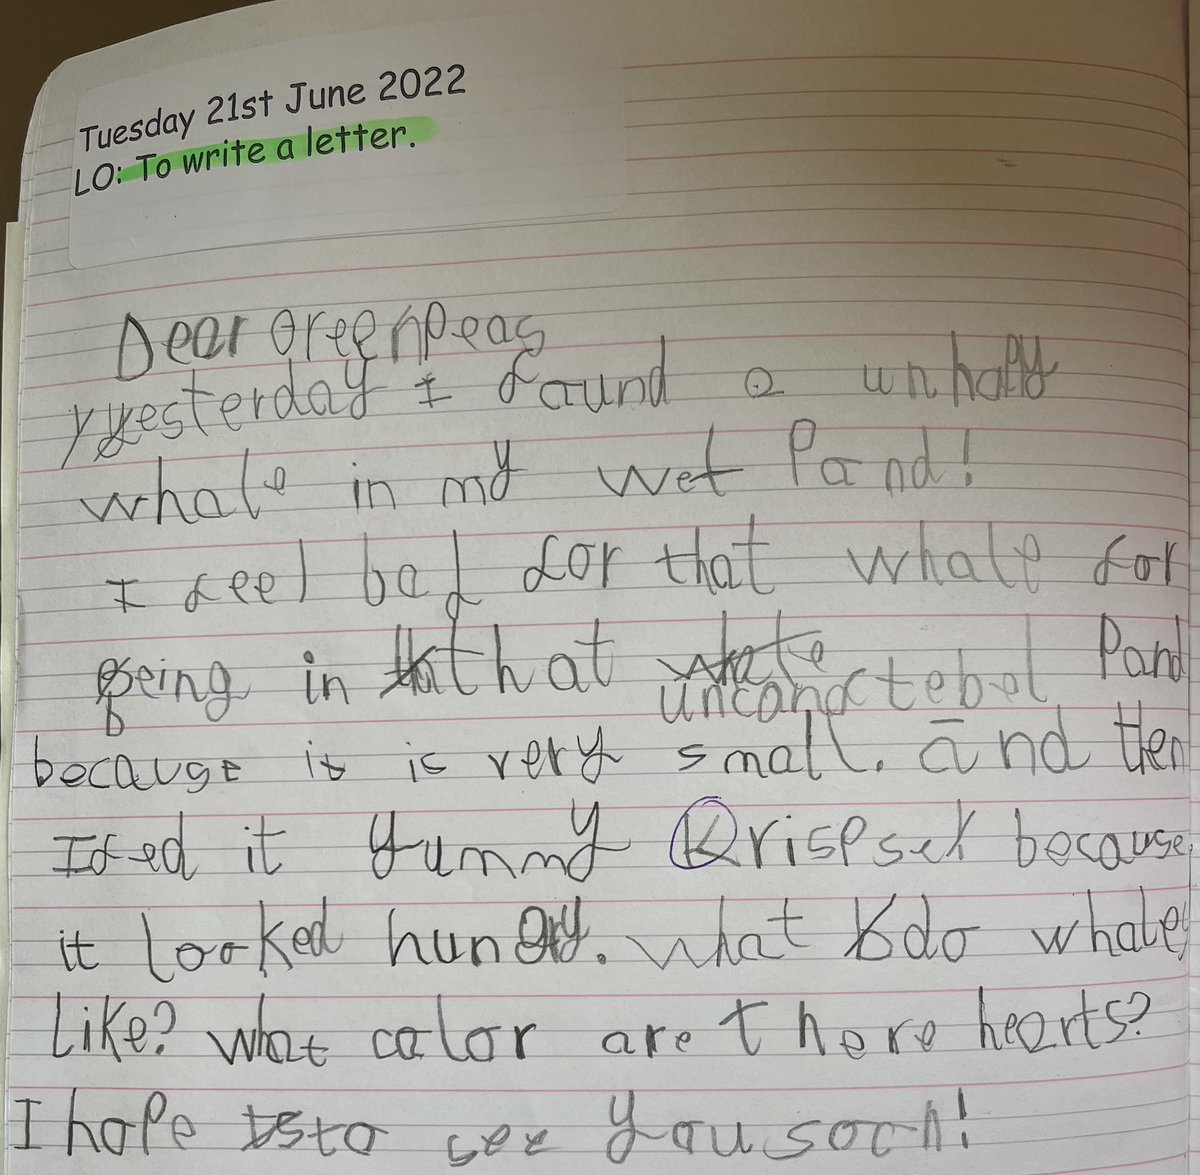 Tuesday 21st June 2022
LO: To write a letter.
Dear Greenpeas
yesterday I found a unhappy
whale in my wet Pond!
I feel bad for that whale for
being in that
uncomftebol Pond
because it is very small. and then
I fed it yummy Krispset because
it looked hungry. what do whales
like? what color are there hearts?
I hope to see you soon!